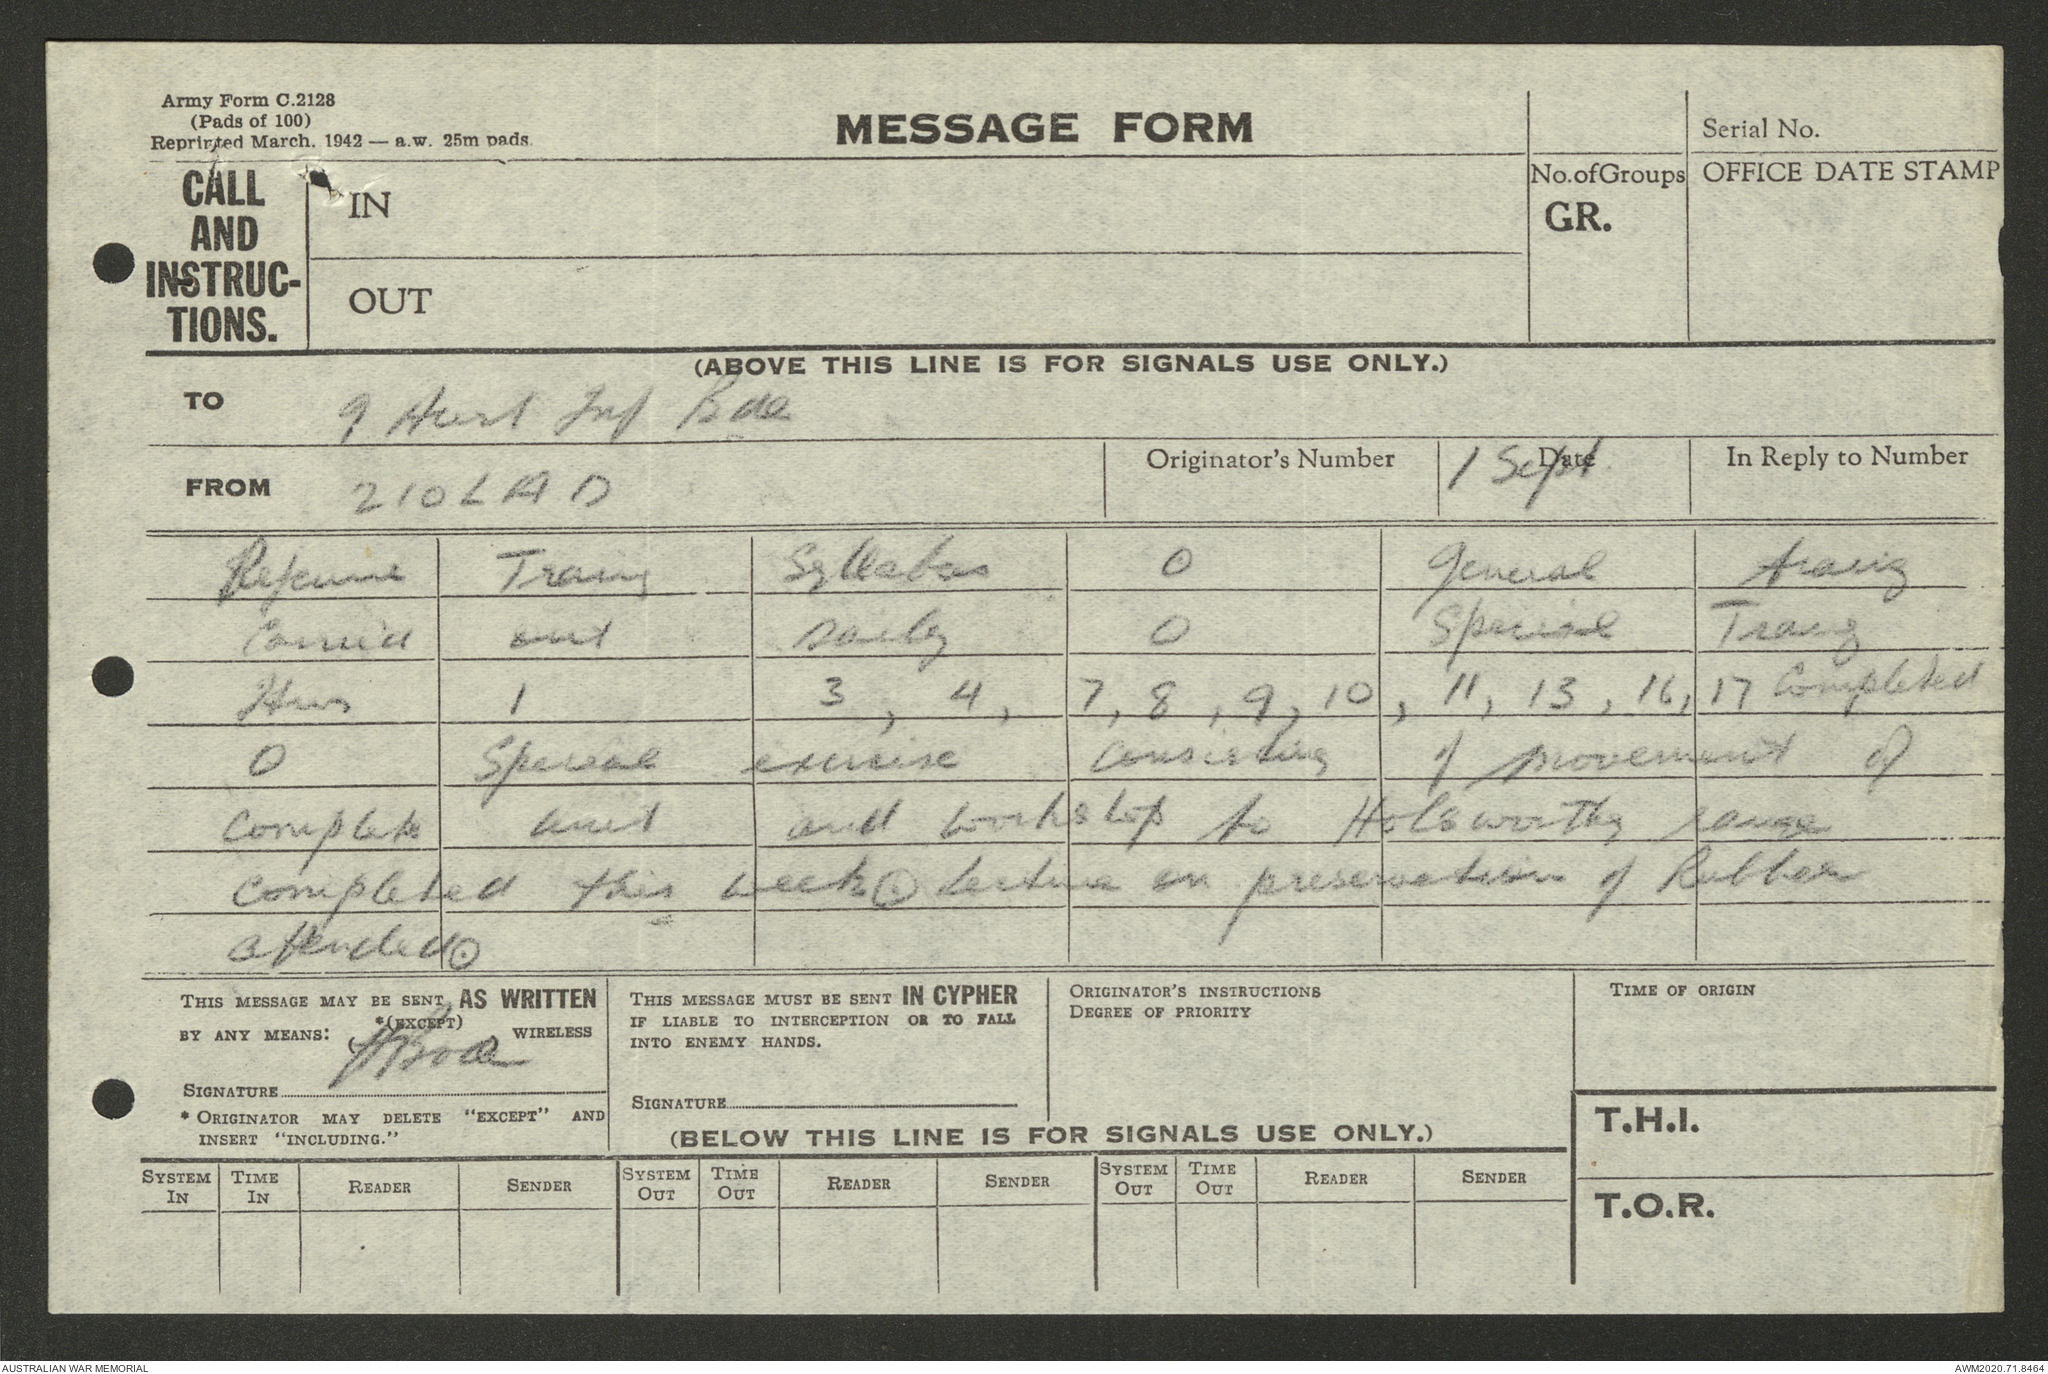 Army Form C.2128
(Pads of 100)
Reprinted March, 1942 — a.w. 25m pads.
MESSAGE FORM
Serial No.
CALL
AND
INSTRUC-
TIONS.
IN
OUT
No. of Groups
GR.
OFFICE DATE STAMP
(ABOVE THIS LINE IS FOR SIGNALS USE ONLY.)
TO 9 Aust Inf Bde
FROM 210 LAD
Originator's Number
Date 1 Sept
In Reply to Number
Training Syllabus O General
out daily O Special
1 3, 4, 7, 8, 9, 10, 11, 13, 16, 17 completed
O Special exercise consisting of movement of
complete unit and workshop to Holsworthy range
completed this week ⊙ Lecture on preservation of Rubber
attended ⊙
THIS MESSAGE MAY BE SENT AS WRITTEN
BY ANY MEANS: *(EXCEPT) WIRELESS
SIGNATURE
* ORIGINATOR MAY DELETE "EXCEPT" AND
INSERT "INCLUDING."
THIS MESSAGE MUST BE SENT IN CYPHER
IF LIABLE TO INTERCEPTION OR TO FALL
INTO ENEMY HANDS.
SIGNATURE
ORIGINATOR'S INSTRUCTIONS
DEGREE OF PRIORITY
TIME OF ORIGIN
T.H.I.
T.O.R.
(BELOW THIS LINE IS FOR SIGNALS USE ONLY.)
SYSTEM IN TIME IN READER SENDER SYSTEM OUT TIME OUT READER SENDER SYSTEM OUT TIME OUT READER SENDER
AUSTRALIAN WAR MEMORIAL
AWM2020.71.8464